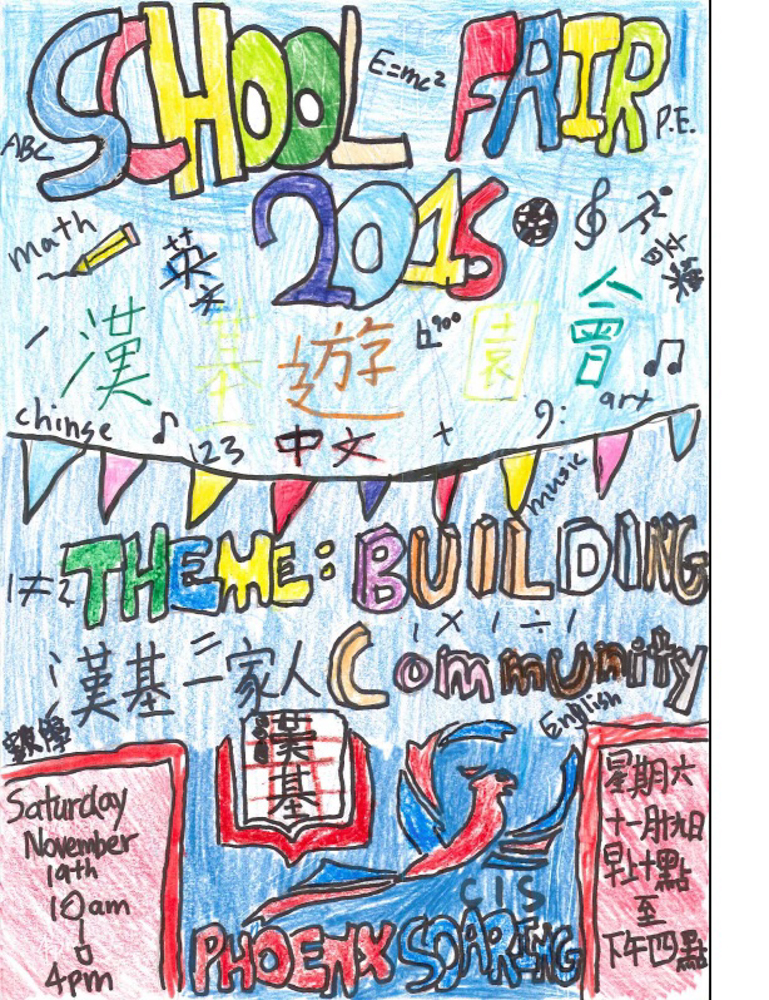 SCHOOL FAIR
E=mc²
ABC
P.E.
2016
math
英文
漢基遊園會
chinse
art
123
中文
+
music
1≠2
THEME: BUILDING
1×1÷1
漢基一家人
Community
English
數學
漢基
Saturday
November
19th
10am
to
4pm
星期六
十一月十九日
早上十點
至
下午四點
CIS
PHOENX SOARING